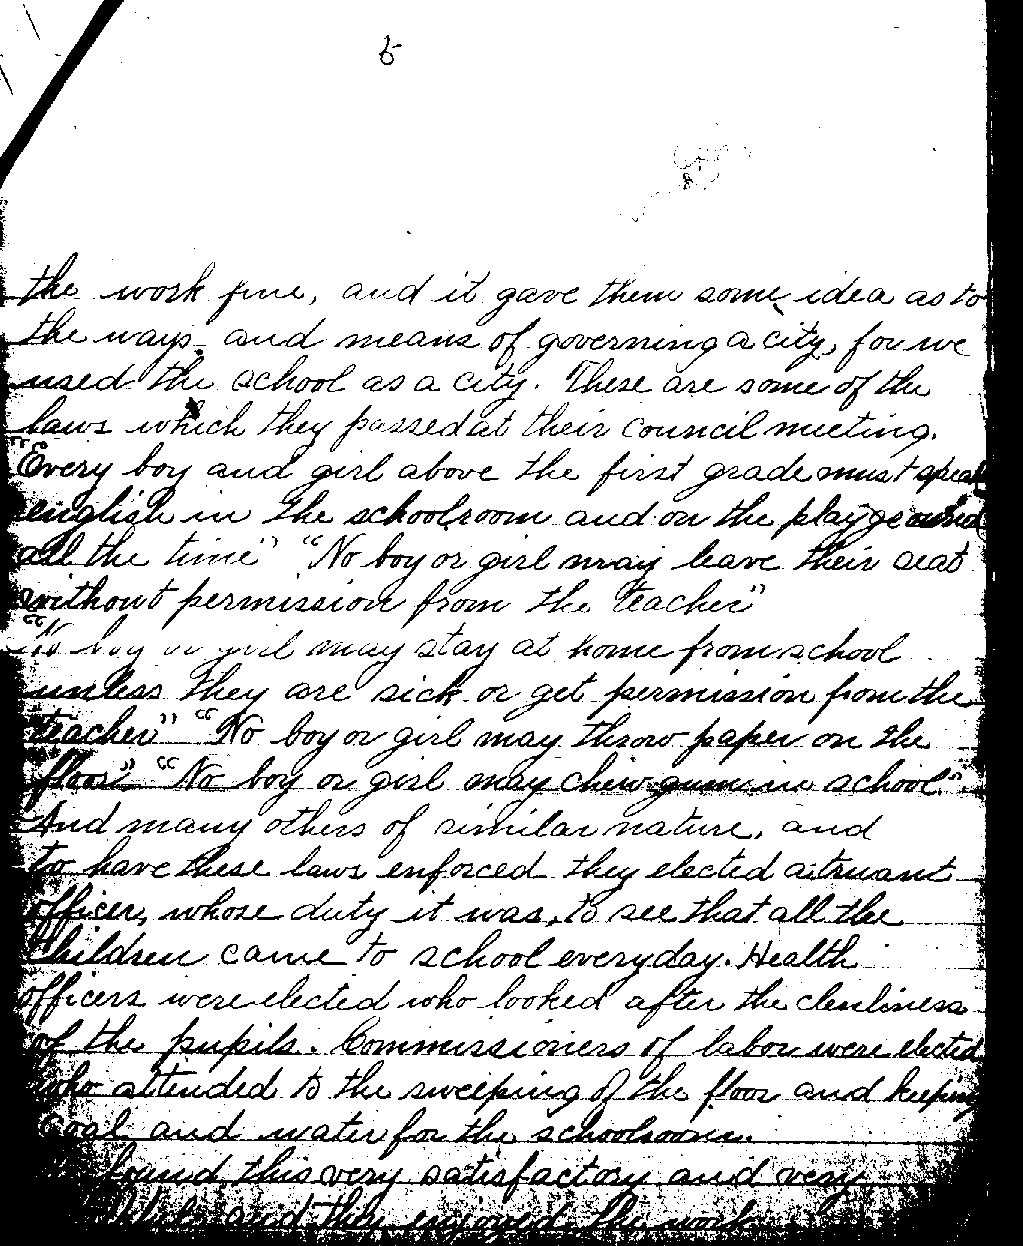 5
the work fine, and it gave them some idea as to
the ways, and means of governing a city, for we
used the school as a city. These are some of the
laws which they passed at their council meeting.
"Every boy and girl above the first grade must speak
english in the schoolroom and on the playground
all the time" "No boy or girl may leave their seat
without permission from the teacher"
"No boy or girl may stay at home from school
unless they are sick or get permission from the
teacher" "No boy or girl may throw paper on the
floor" "No boy or girl may chew gum in school"
And many others of similar nature, and
to have these laws enforced they elected a truant
officer, whose duty it was, to see that all the
children came to school everyday. Health
officers were elected who looked after the clenliness
of the pupils. Commissioners of labor were elected
who attended to the sweeping of the floor and keeping
coal and water for the schoolroom.
found this very satisfactory and very
and they enjoyed the work